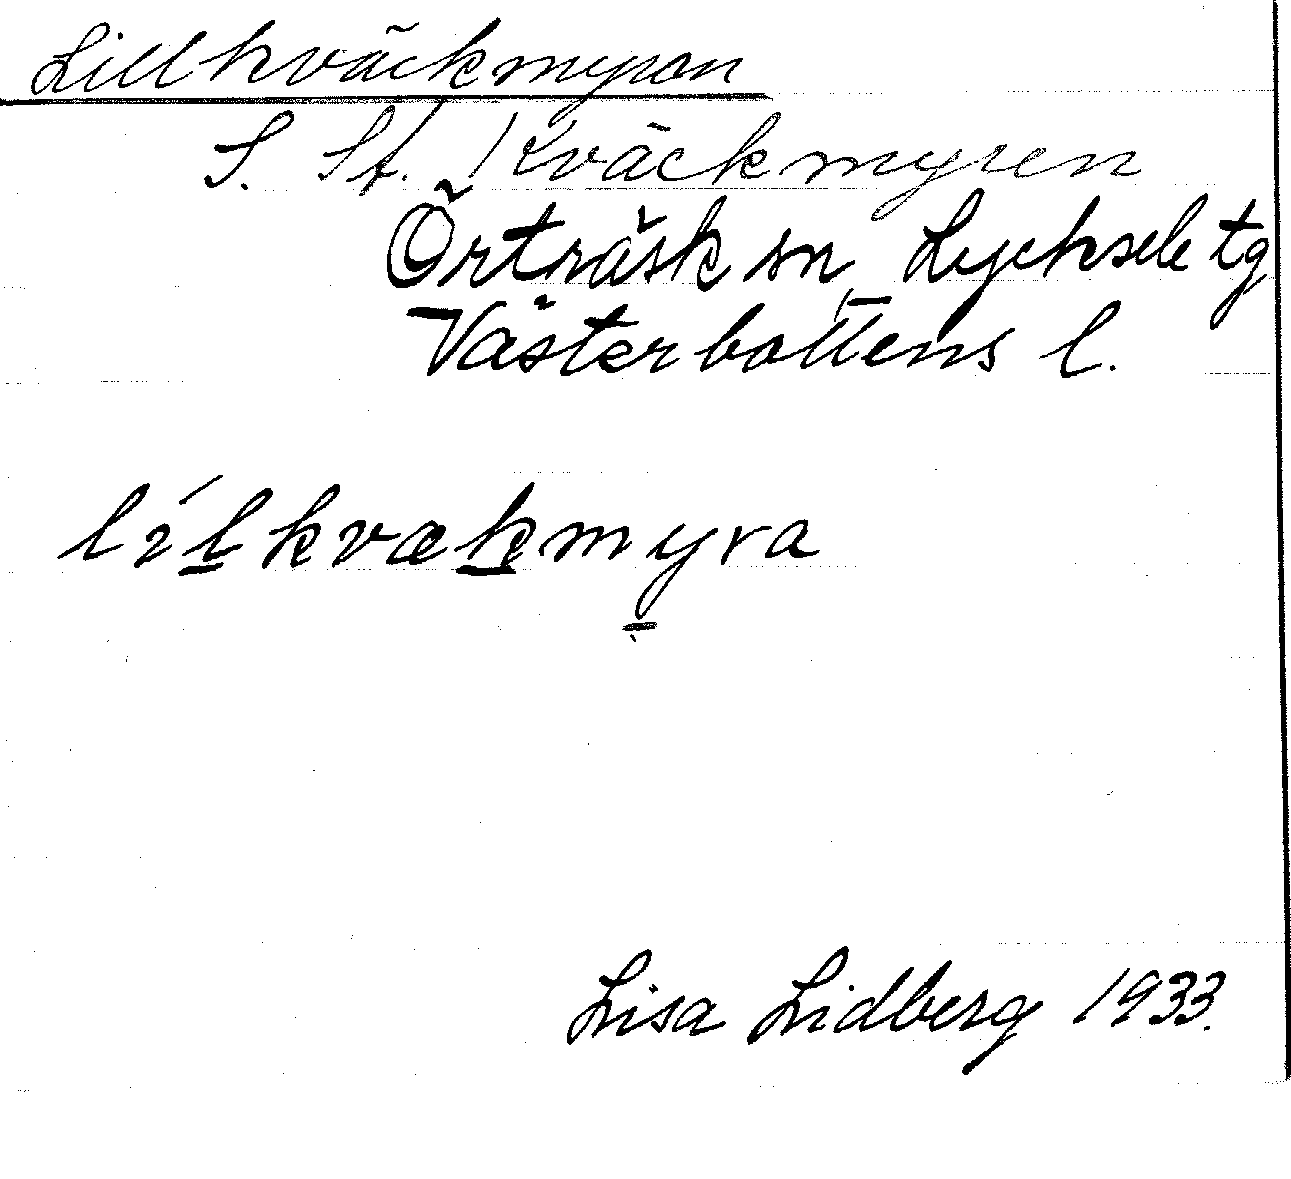 Lillkväckmyran
S. St. Kväckmyren
Örträsk sn, Lycksele tg
Västerbottens l.
lílkvækmyra
Lisa Lidberg 1933.